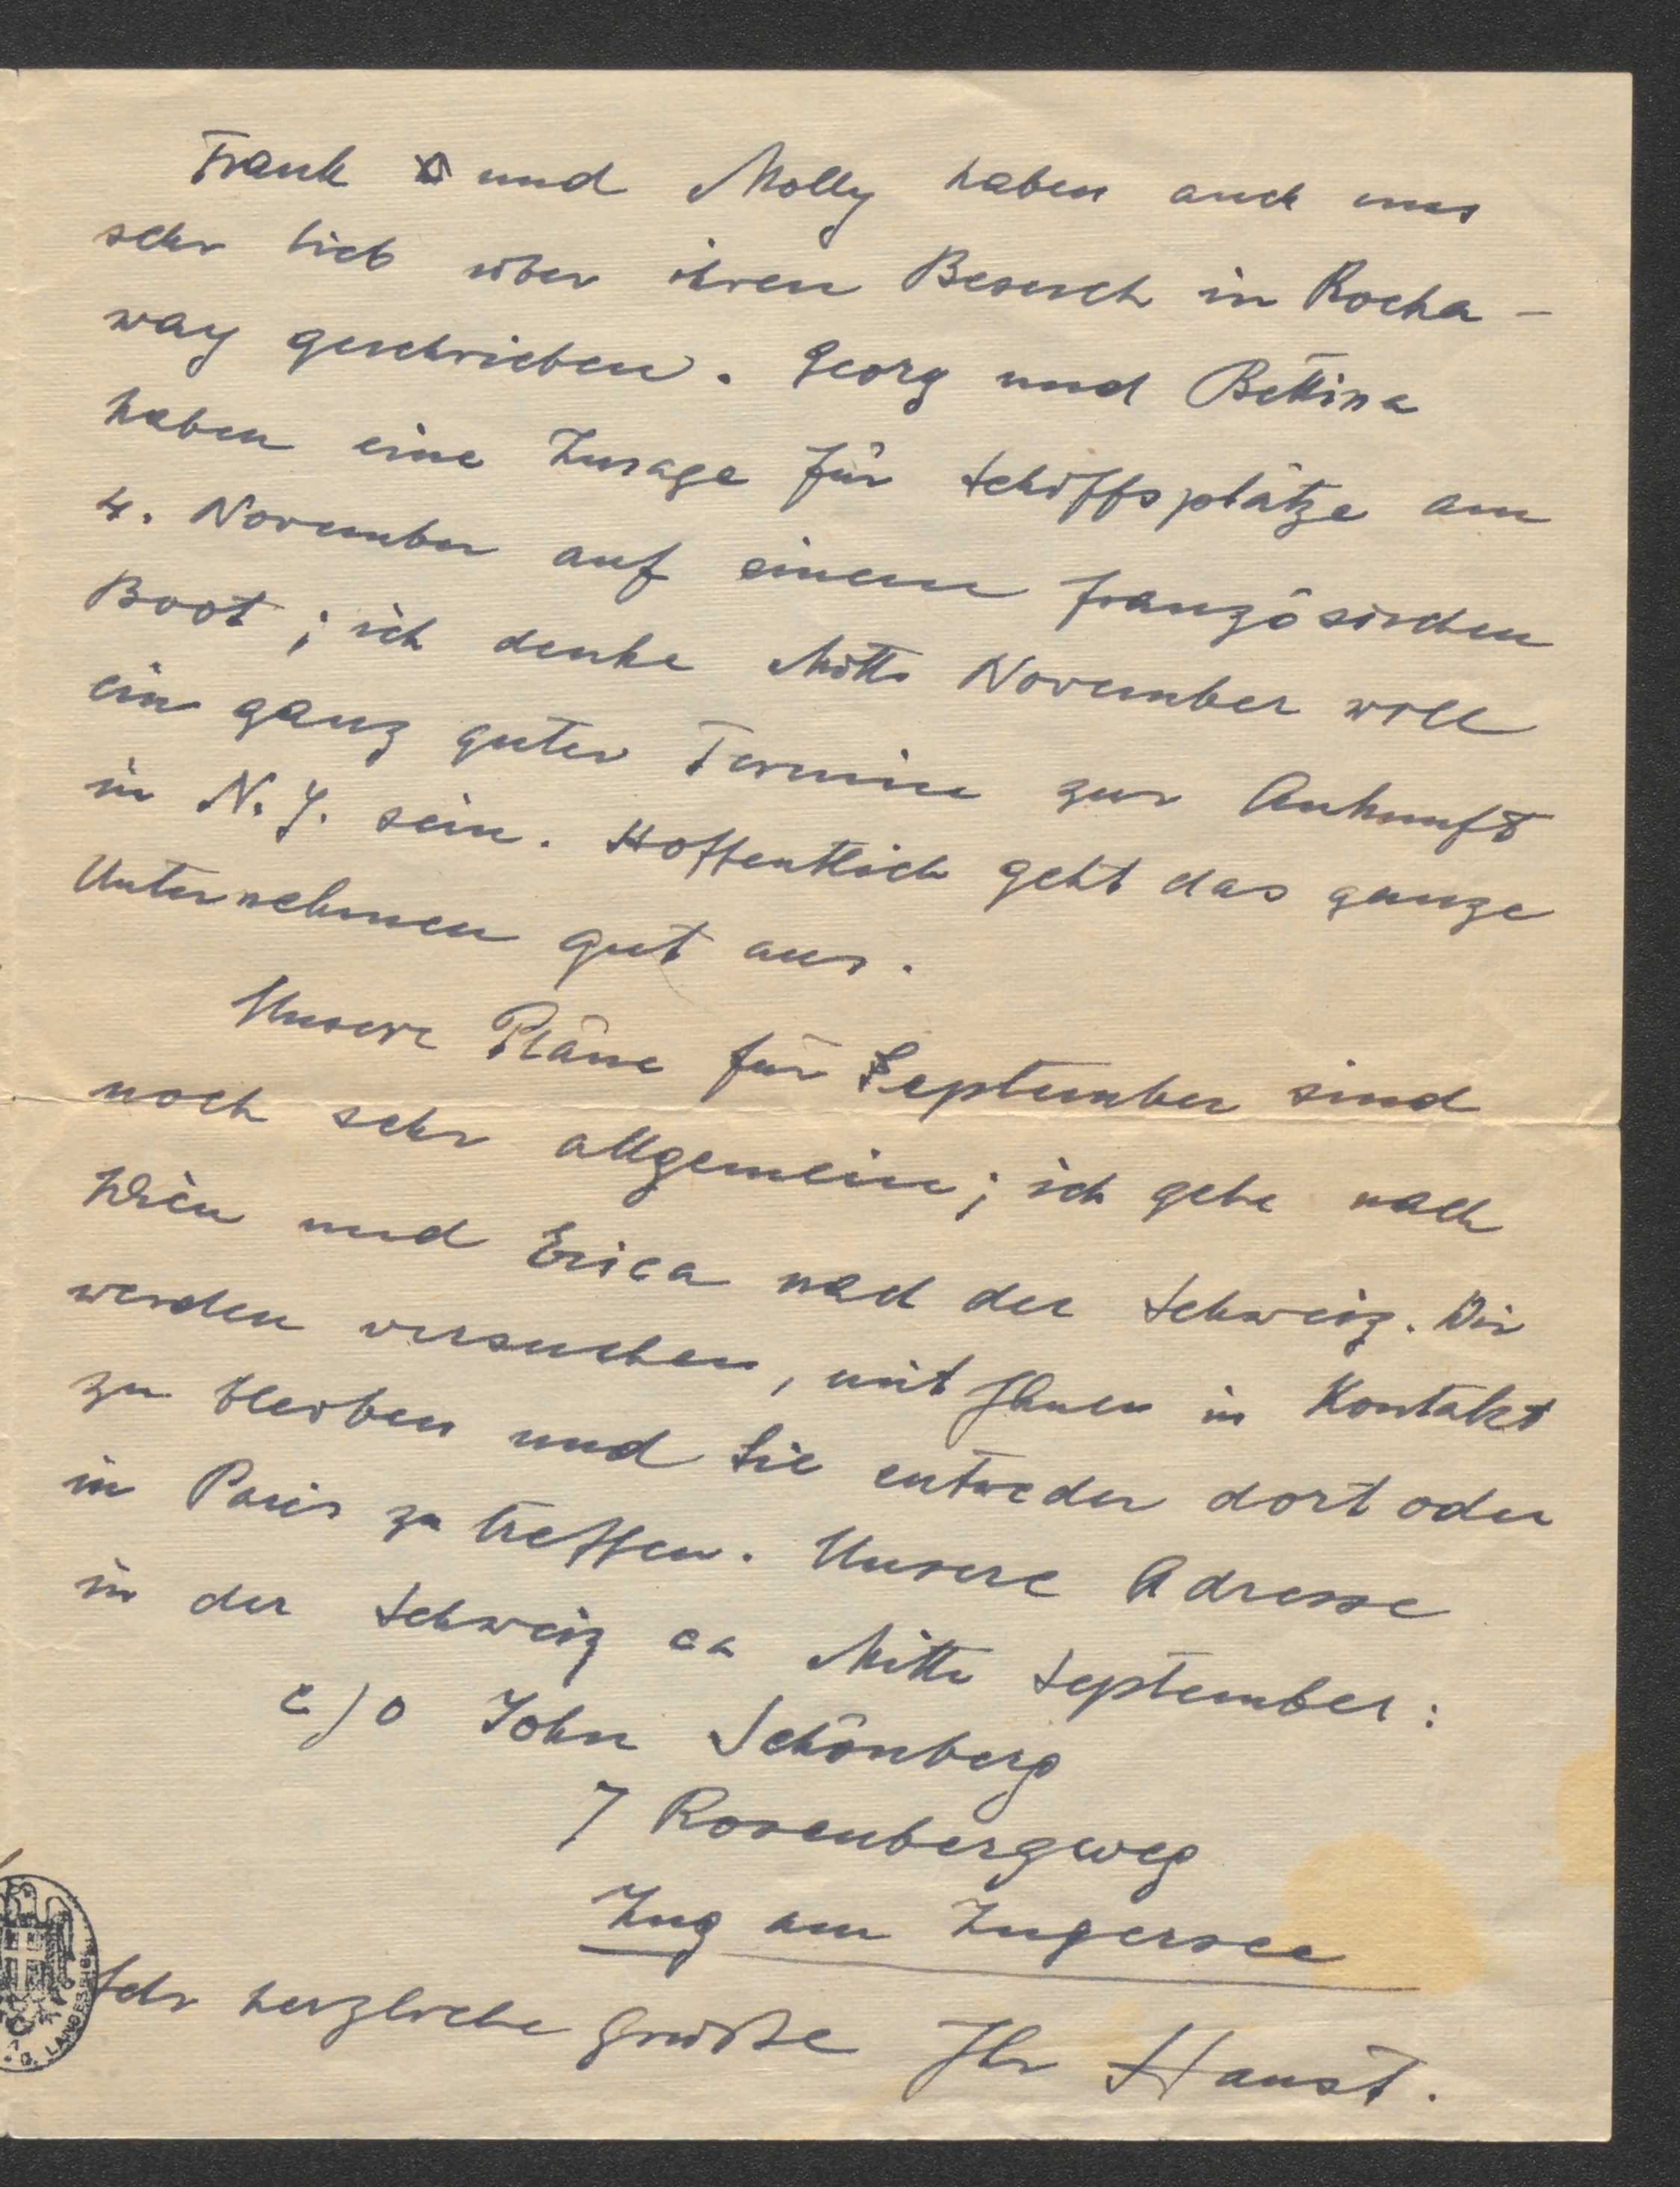 Frank und Molly haben auch uns
sehr lieb über ihren Besuch in Rocka-
way geschrieben. Georg und Bettina
haben eine Zusage für Schiffsplätze am
4. November auf einem französischen
Boot; ich denke Mitte November will
ein ganz guter Termin zur Ankunft
in N.Y. sein. Hoffentlich geht das ganze
Unternehmen gut aus.
Unsere Pläne für September sind
noch sehr allgemein; ich gehe nach
Wien und Erica nach der Schweiz. Wir
werden versuchen, mit Ihnen in Kontakt
zu bleiben und Sie entweder dort oder
in Paris zu treffen. Unsere Adresse
in der Schweiz ca Mitte September:
c/o John Schönberg
7 Rosenbergweg
Zug am Zugersee
Sehr herzliche Grüße Ihr Hanst.